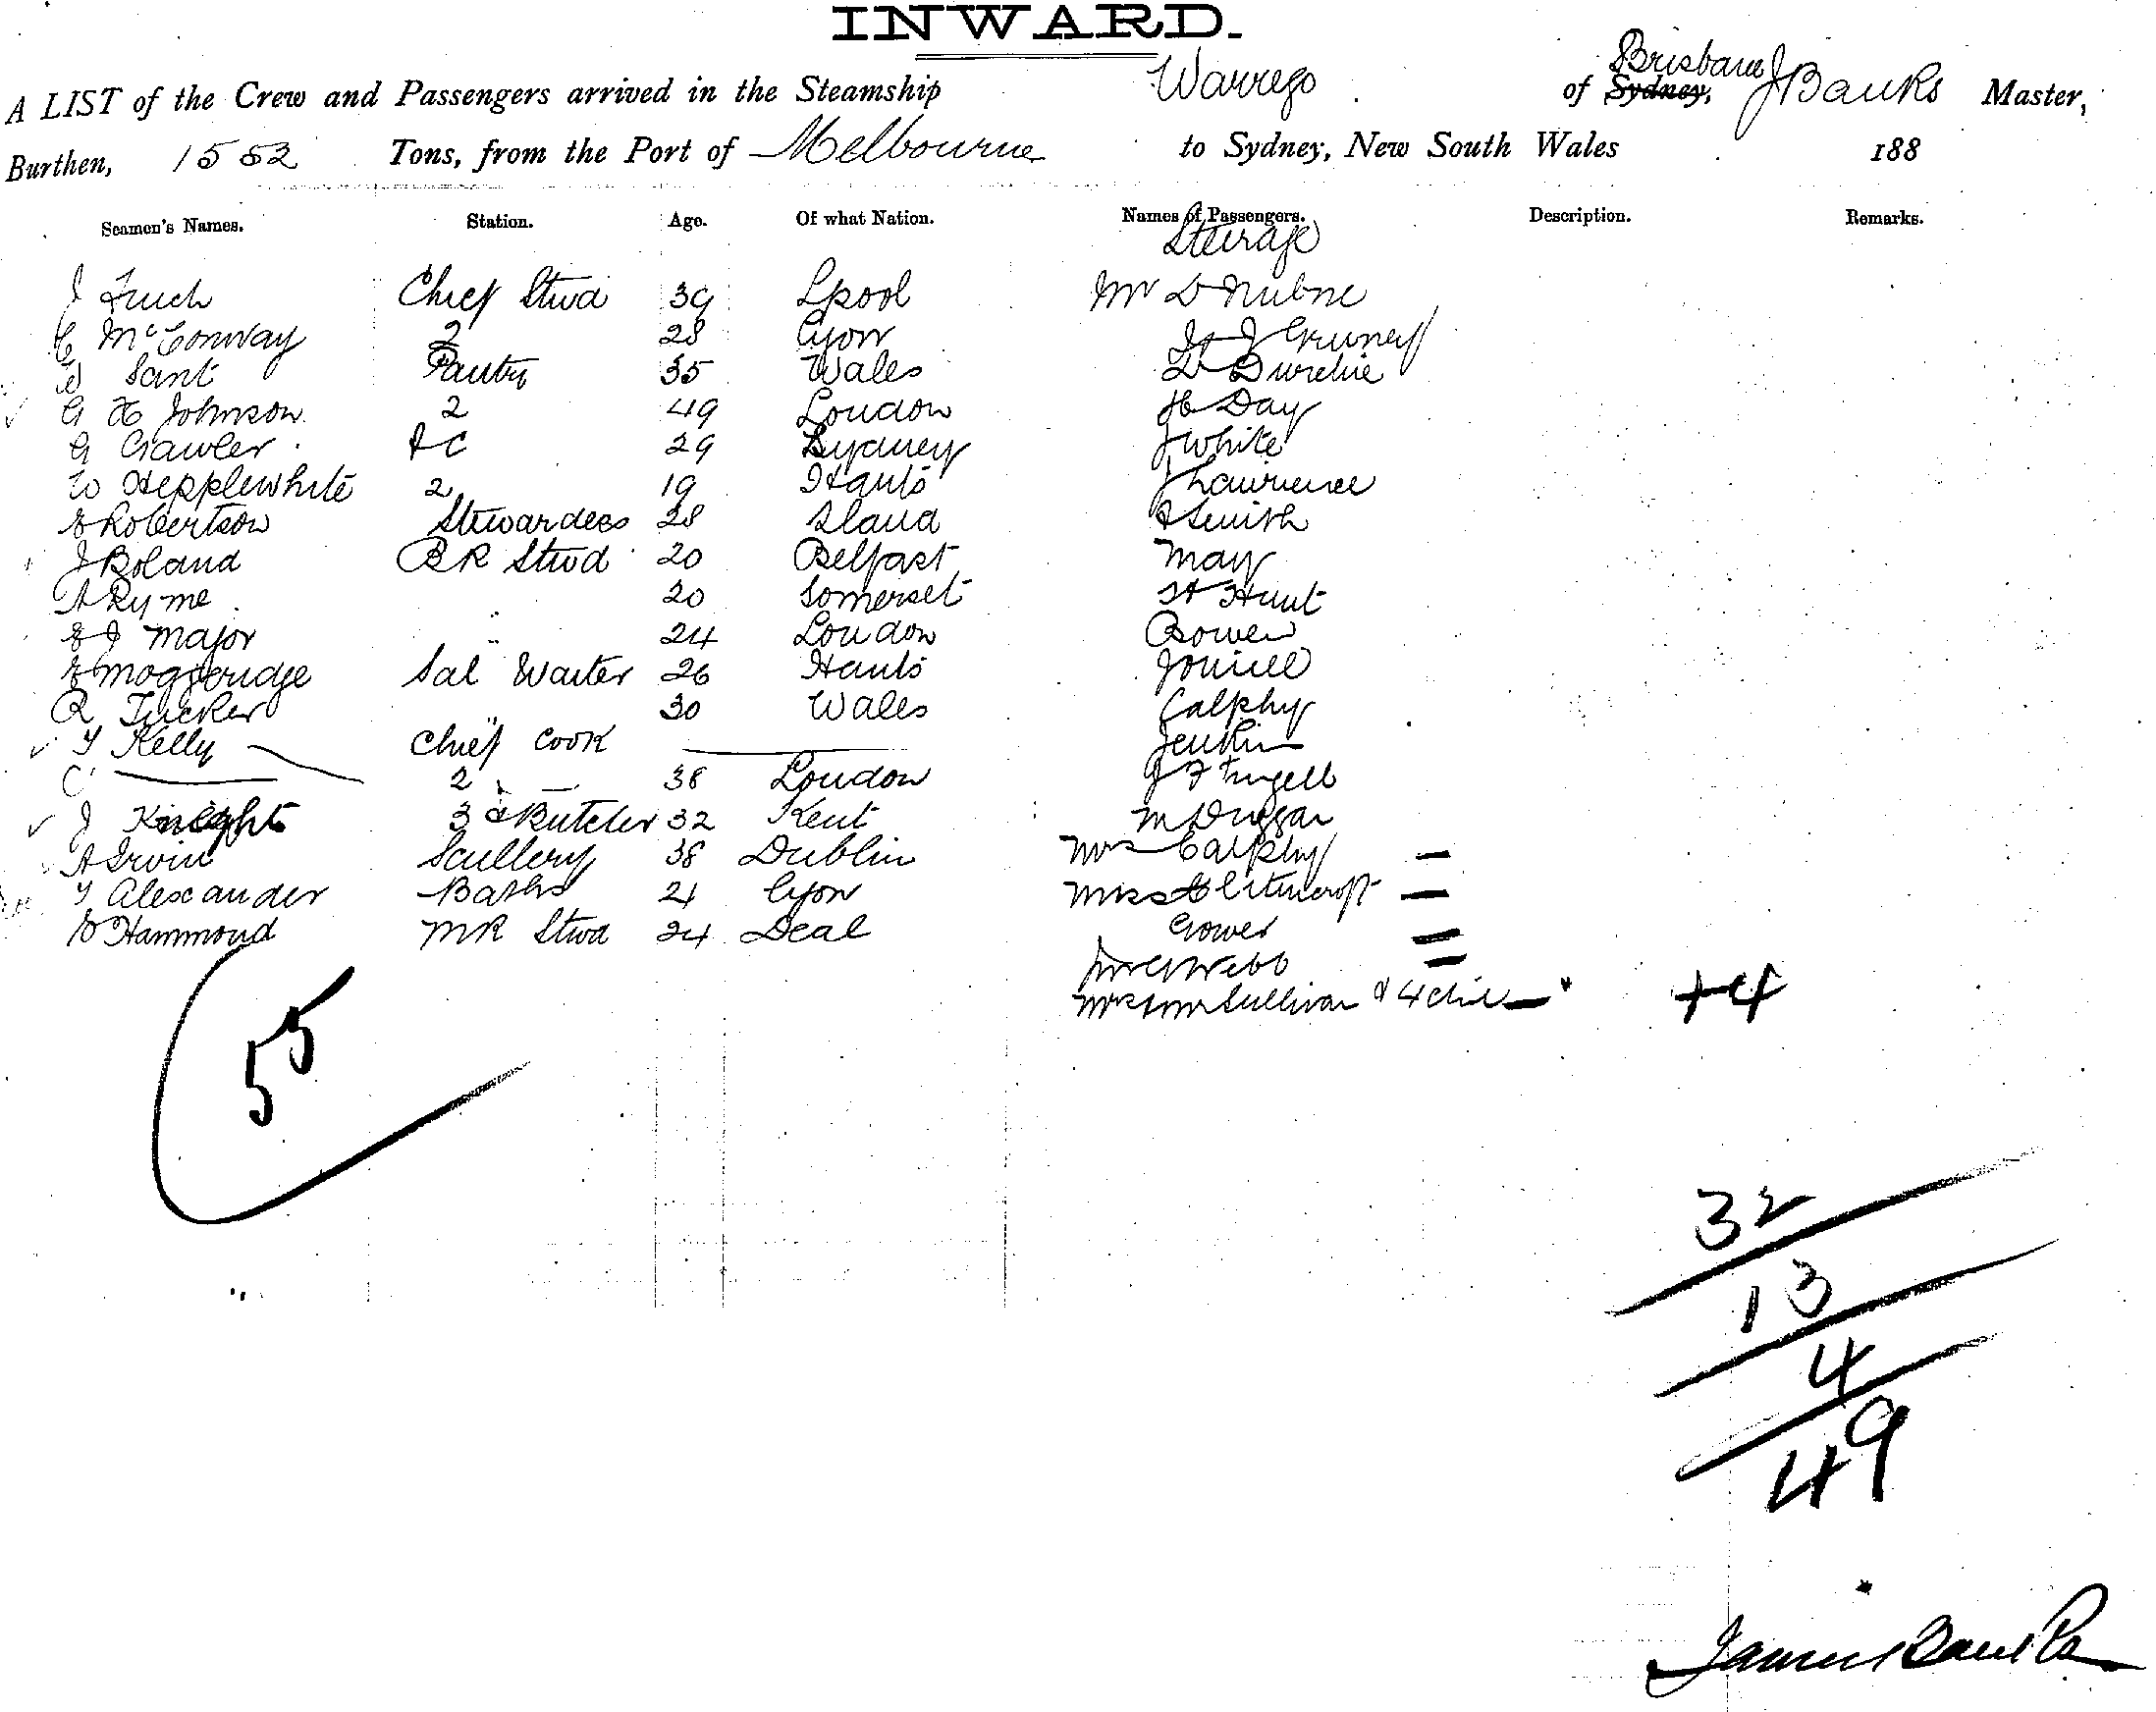 INWARD.
A LIST of the Crew and Passengers arrived in the Steamship Warrego of Brisbane Sydney, J Banks Master,
Burthen, 1552 Tons, from the Port of Melbourne to Sydney, New South Wales 188
Seamen's Names. Station. Age. Of what Nation. Names of Passengers. Description. Remarks.
Steirage
J Chief Stwd 39 Lpool Mr D
C McConway 2 28 Lyon J
W Sant Pantry 35 Wales D
G H Johnson 2 49 London H Day
G Crawler 29 Sydney J White
W Hepplewhite 2 19 Hants J Lawrence
E Robertson Stewardess 28 Sland R Smith
J Boland BR Stwd 20 Belfast May
A Ryme 20 Somerset H Hunt
E J Major " 24 London Bower
E Moggeridge Sal Waiter 26 Hants
R Tucker " 30 Wales Calphy
T Kelly Chief Cook Jenkin
C 2 38 London J F
J Knight 3 & Butcher 32 Kent M Duggan
A Irwin Scullery 38 Dublin Mrs Calphy
T Alexander Baths 21 Lyon Miss
E Hammond MR Stwd 24 Deal Gower
Webb
Mrs Sullivan & 4 chil +4
55
32
13
4
49
James Banks